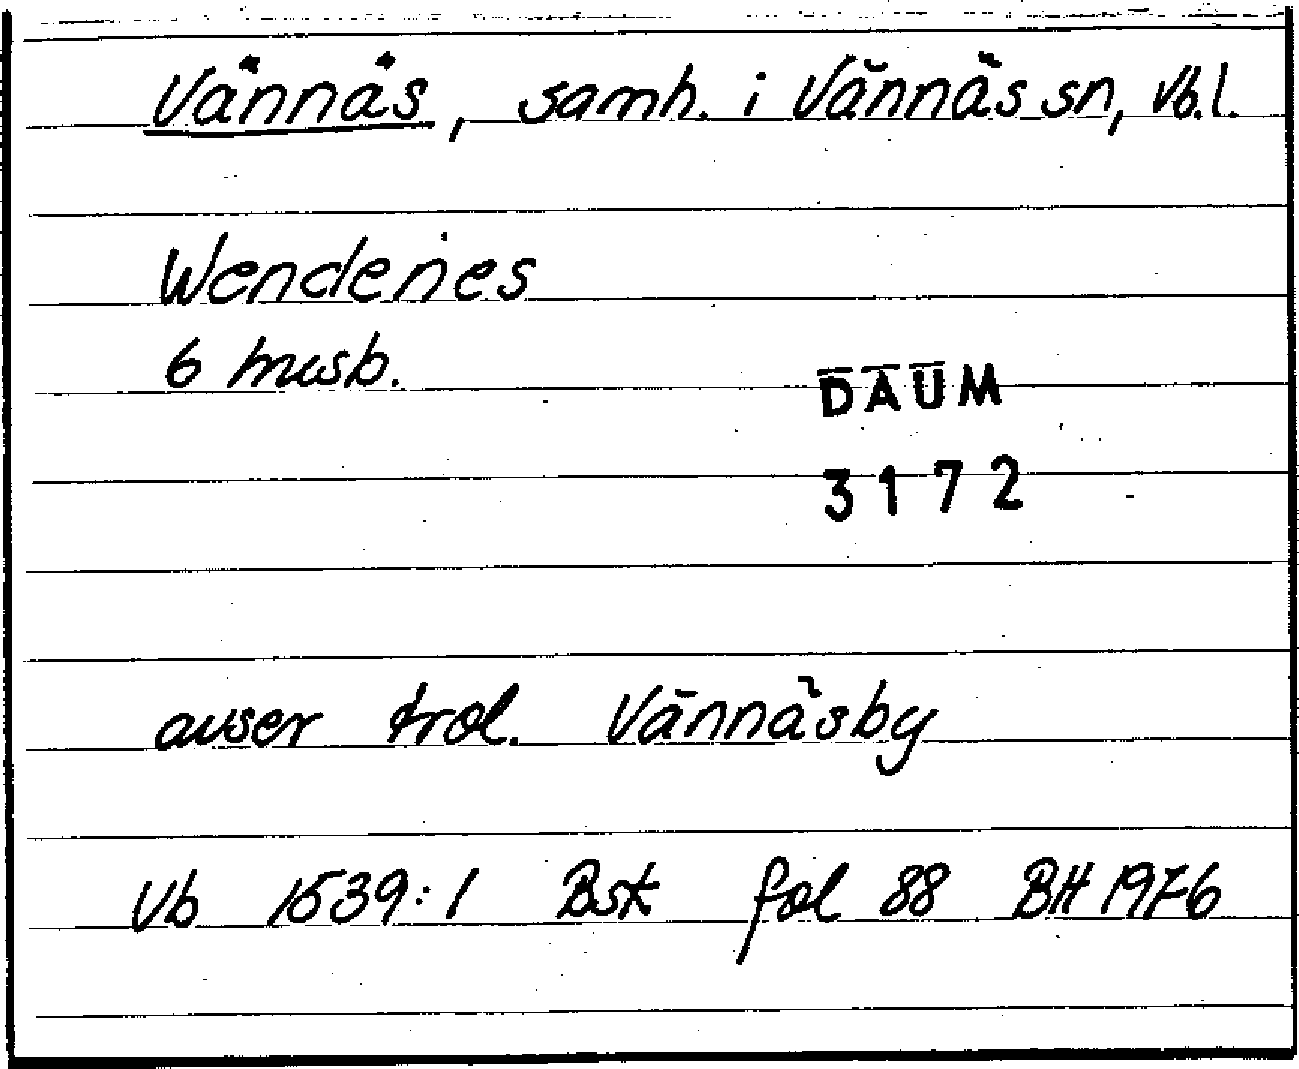 Vännäs, samh. i Vännäs sn, Vb.l.
Wendenes
6 husb.
DAUM
3172
avser trol. Vännäsby
Vb 1539:1 Bsk fol 88 BH 1976